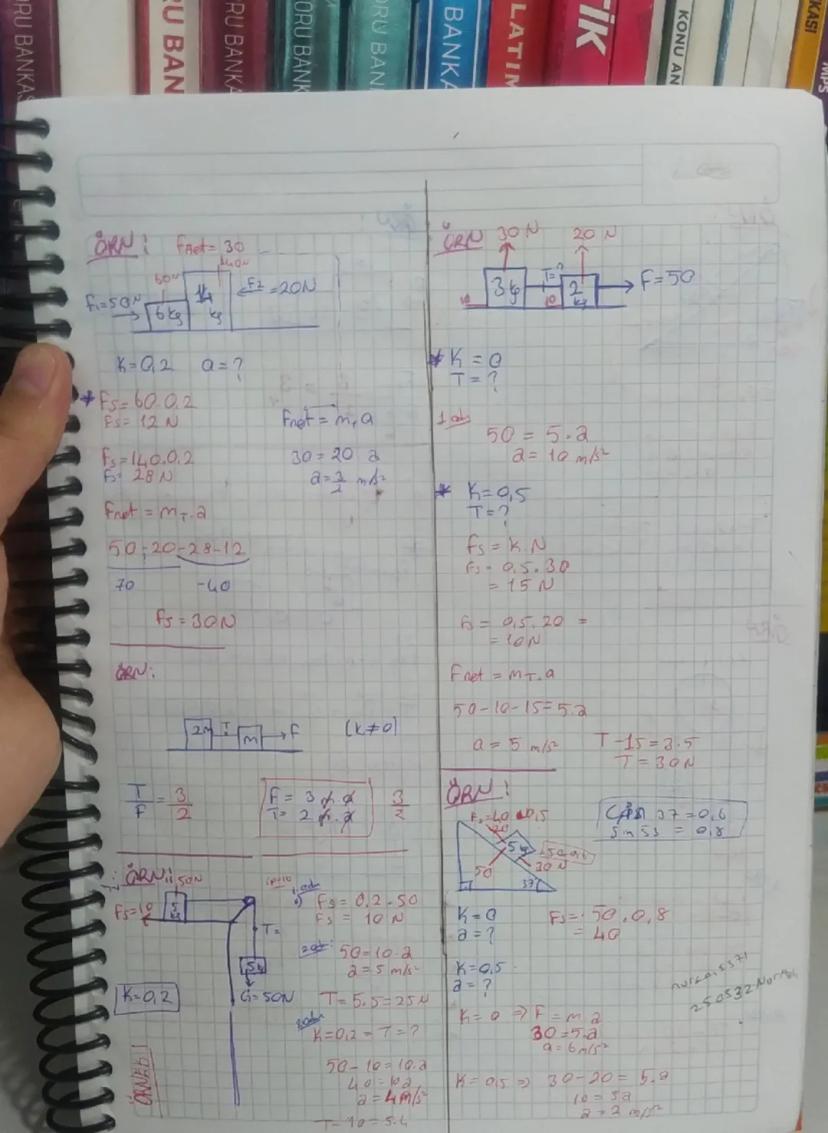 ORU BANKASI
RU BAN
ORU BANKA
ORU BANI
ORU BANI
BANKA
LATIM
TİK
KONU AN
KASI
MPS
ÖRN:
FNet = 30
60N
140N
F1=50N
6kg
14 kg
F2=20N
K=0,2 a=?
* Fs=60.0,2
Fs=12N
Fs=140.0,2
Fs=28N
Fnet = mT.a
50-20-28-12
70 -40
Fs=30N
Fnet = mT.a
30=20 a
a=3/2 m/s²
ÖRN:
2m T m F (K≠0)
T/F = 3/2
F = 3 m.a
T = 2 m.a
3/2
ÖRN:
50N
Fs=10
5 kg
T=
5kg
G=50N
K=0,2
ÖRNEK!
Fs=0,2.50
Fs = 10 N
50=10.a
a=5 m/s²
T=5.5=25N
K=0,2=T=?
50-10=10.a
40=10a
a=4m/s²
T-10=5.4
ÖRN
30 N
20 N
3 kg
T=?
2 kg
F=50
10
10
* K=0
T=?
50=5.a
a=10 m/s²
* K=0,5
T=?
Fs=K.N
Fs=0,5.30
= 15 N
Fs = 0,5.20 =
=10N
Fnet = mT.a
50-10-15=5.a
a=5 m/s²
T-15=3.5
T=30N
ÖRN:
Fs=40.0,5
20
5kg
50.0,6
30 N
50
37°
37 =0,6
Sin 53 = 0,8
K=0
a=?
Fs=50.0,8
= 40
K=0,5
a=?
K=0 ⇒ F=m.a
30=5.a
a=6m/s²
K=0,5 ⇒ 30-20=5.a
10=5a
a=2 m/s²